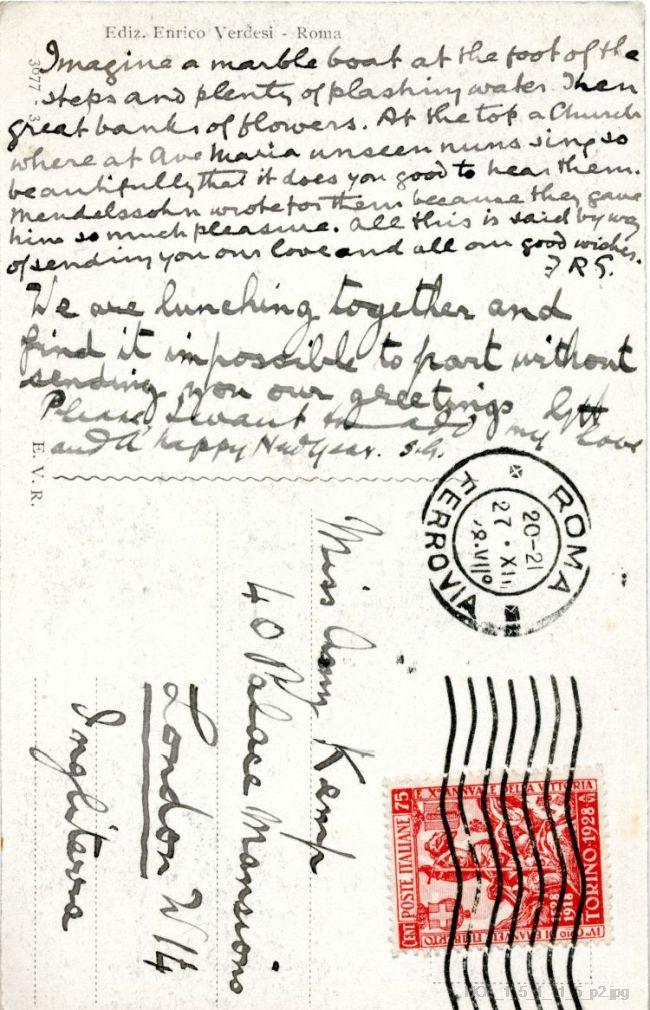 Ediz. Enrico Verdesi - Roma
3977 - 3
Imagine a marble boat at the foot of the
steps and plenty of plashing water. Then
great banks of flowers. At the top a Church
where at Ave Maria unseen nuns sing so
beautifully that it does you good to hear them.
Mendelssohn wrote for them because they gave
him so much pleasure. All this is said by way
of sending you our love and all our good wishes.
We are lunching together and
find it impossible to part without
sending you our greetings
Please I want to add my love
and A happy New Year. S.G.
E. V. R.
ROMA
FERROVIA
20-21
27 · XII
Miss Ann Kemp
40 Palace Mansions
London W14
Inghilterra
CENT 75
POSTE ITALIANE
E X° ANN.LE DELLA VITTORIA
IV C.RIO DI EMANUEL FILIBERTO
1928
1918
TORINO·1928·A.VI